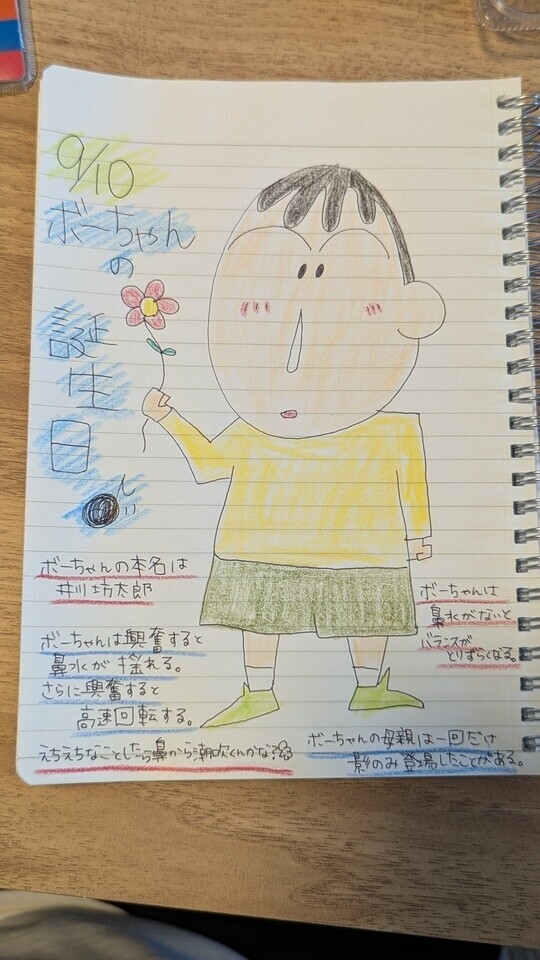 9/10
ボーちゃん
の
誕
生
日
ボーちゃんの本名は
井川 坊太郎
ボーちゃんは興奮すると
鼻水が揺れる。
さらに興奮すると
高速回転する。
えちえちなことしたら鼻から潮吹くんかな?
ボーちゃんは
鼻水がないと
バランスが
とりずらくなる。
ボーちゃんの母親は一回だけ
影のみ登場したことがある。